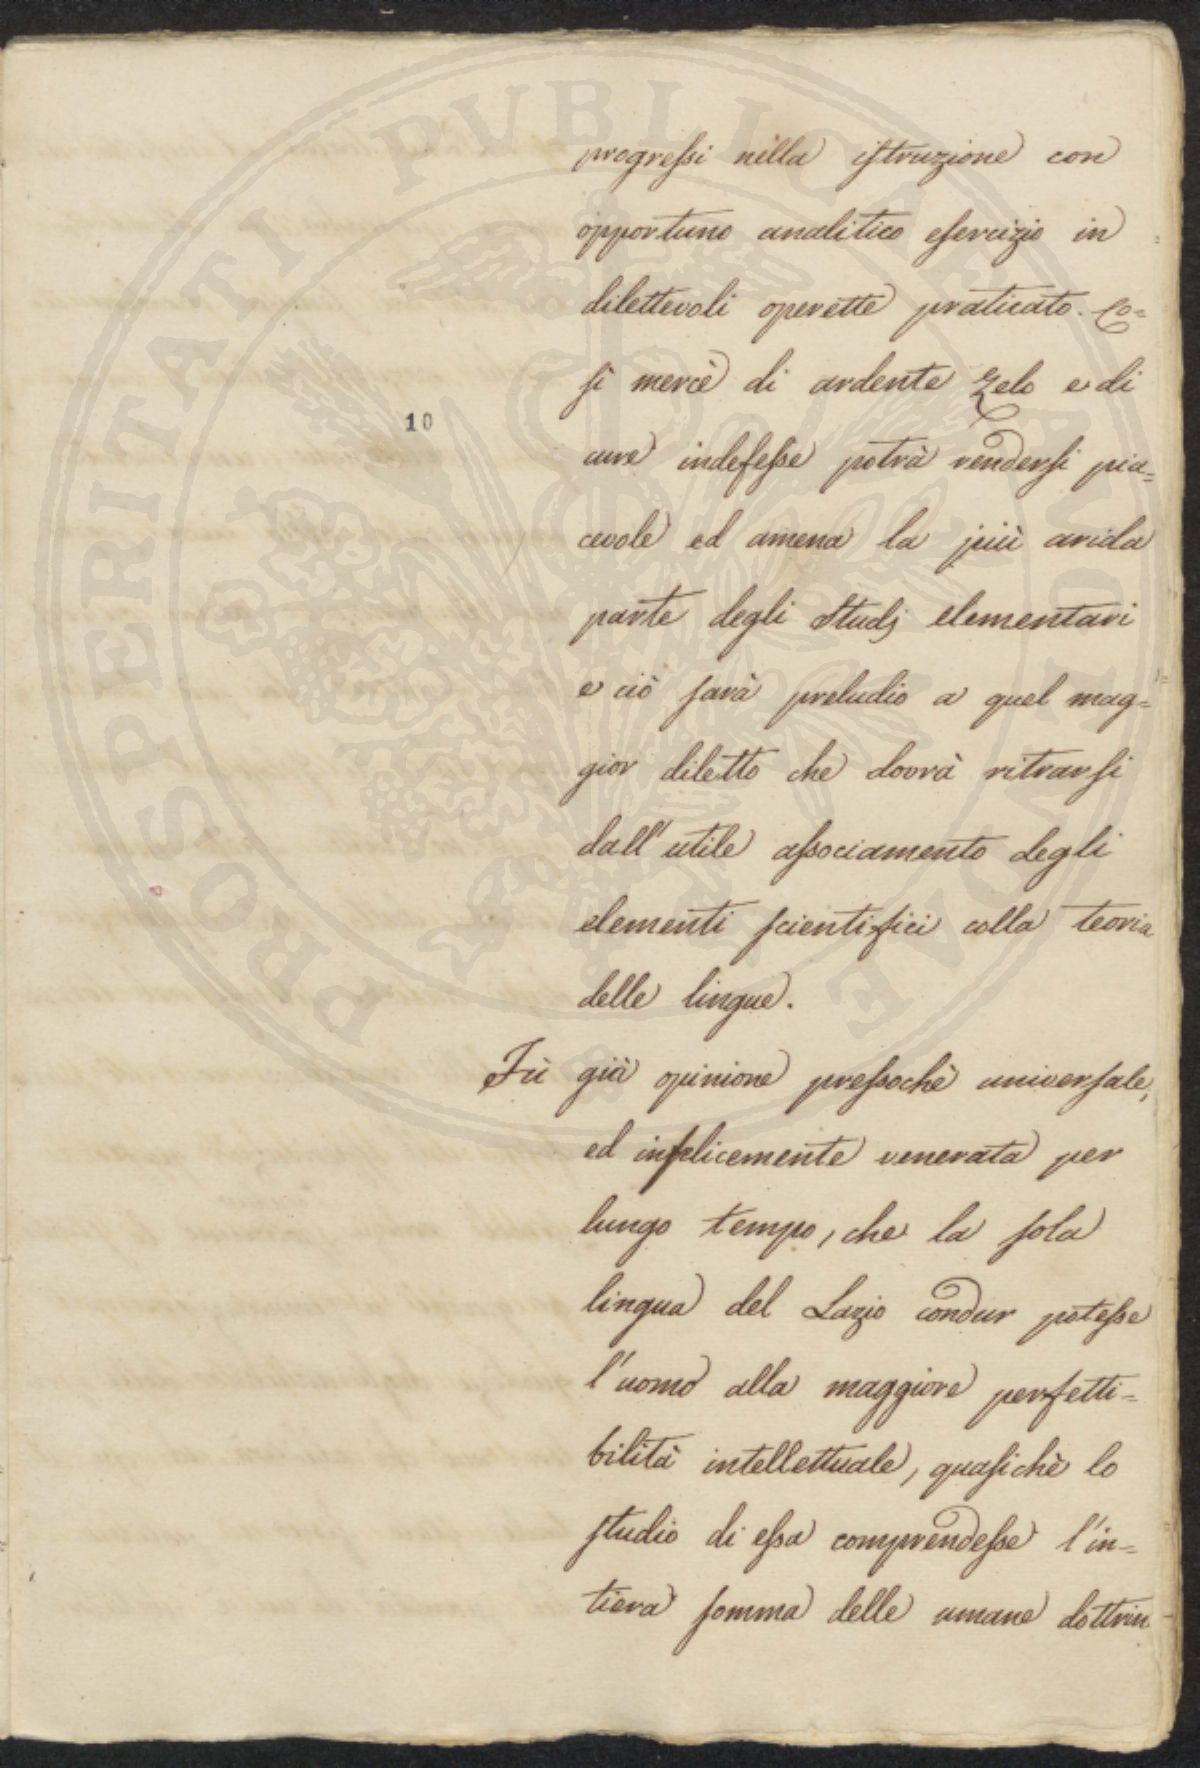 progressi nella istruzione con
opportuno analitico esercizio in
dilettevoli operette praticato. Co=
sì mercè di ardente zelo e di
10
cure indefesse potrà rendersi pia=
cevole ed amena la più arida
parte degli Studj elementari
e ciò sarà preludio a quel mag=
gior diletto che dovrà ritrarsi
dall'utile associamento degli
elementi scientifici colla teoria
delle lingue.
Fù già opinione pressochè universale,
ed infelicemente venerata per
lungo tempo, che la sola
lingua del Lazio condur potesse
l'uomo alla maggiore perfetti=
bilità intellettuale, quasichè lo
studio di essa comprendesse l'in=
tiera somma delle umane dottrin
PROSPERITATI PUBLICAE